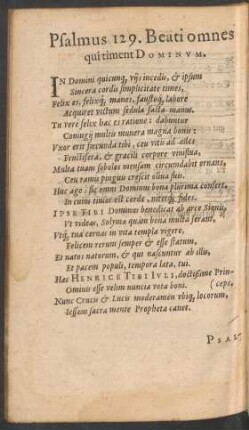 Psalmus 129. Beati omnes
qui timent DOMINVM.
IN Domini quicunq, vijs incedit, & ipsum
Sincera cordis simplicitate timet,
Felix es, felixq, manes, faustoq, labore
Acquiret victum sedula facta manus.
Tu vero felix hac es ratione: dabuntur
Coniugij multis munera magna bonis:
Vxor erit fœcunda tibi, ceu vitis ad ædes
Fructifera, & gracili corpore venusta,
Multa tuam soboles mensam circundabit ornans,
Ceu ramis pinguis crescit oliua suis.
Huc ago: sic omni Dominus bona plurima confert,
In cuius timor est corde, metusq, fides.
IPSE TIBI Dominus benedicat ab arce Sionis,
Vt videas, Solyma quam bona multa ferant,
Vtq, tua cernas in vita templa vigere,
Felicem rerum semper & esse statum,
Et natos natorum, & qui nascuntur ab illis,
Et pacem populi, tempora læta, tui.
Hæc HENRICE TIBI IVLI, doctissime Prin-
(ceps,
Ominis esse velim nuncia vota boni.
Nunc Crucis & Lucis moderamen vbiq, locorum,
Iessens sacra mente Propheta canet.
PSAL-